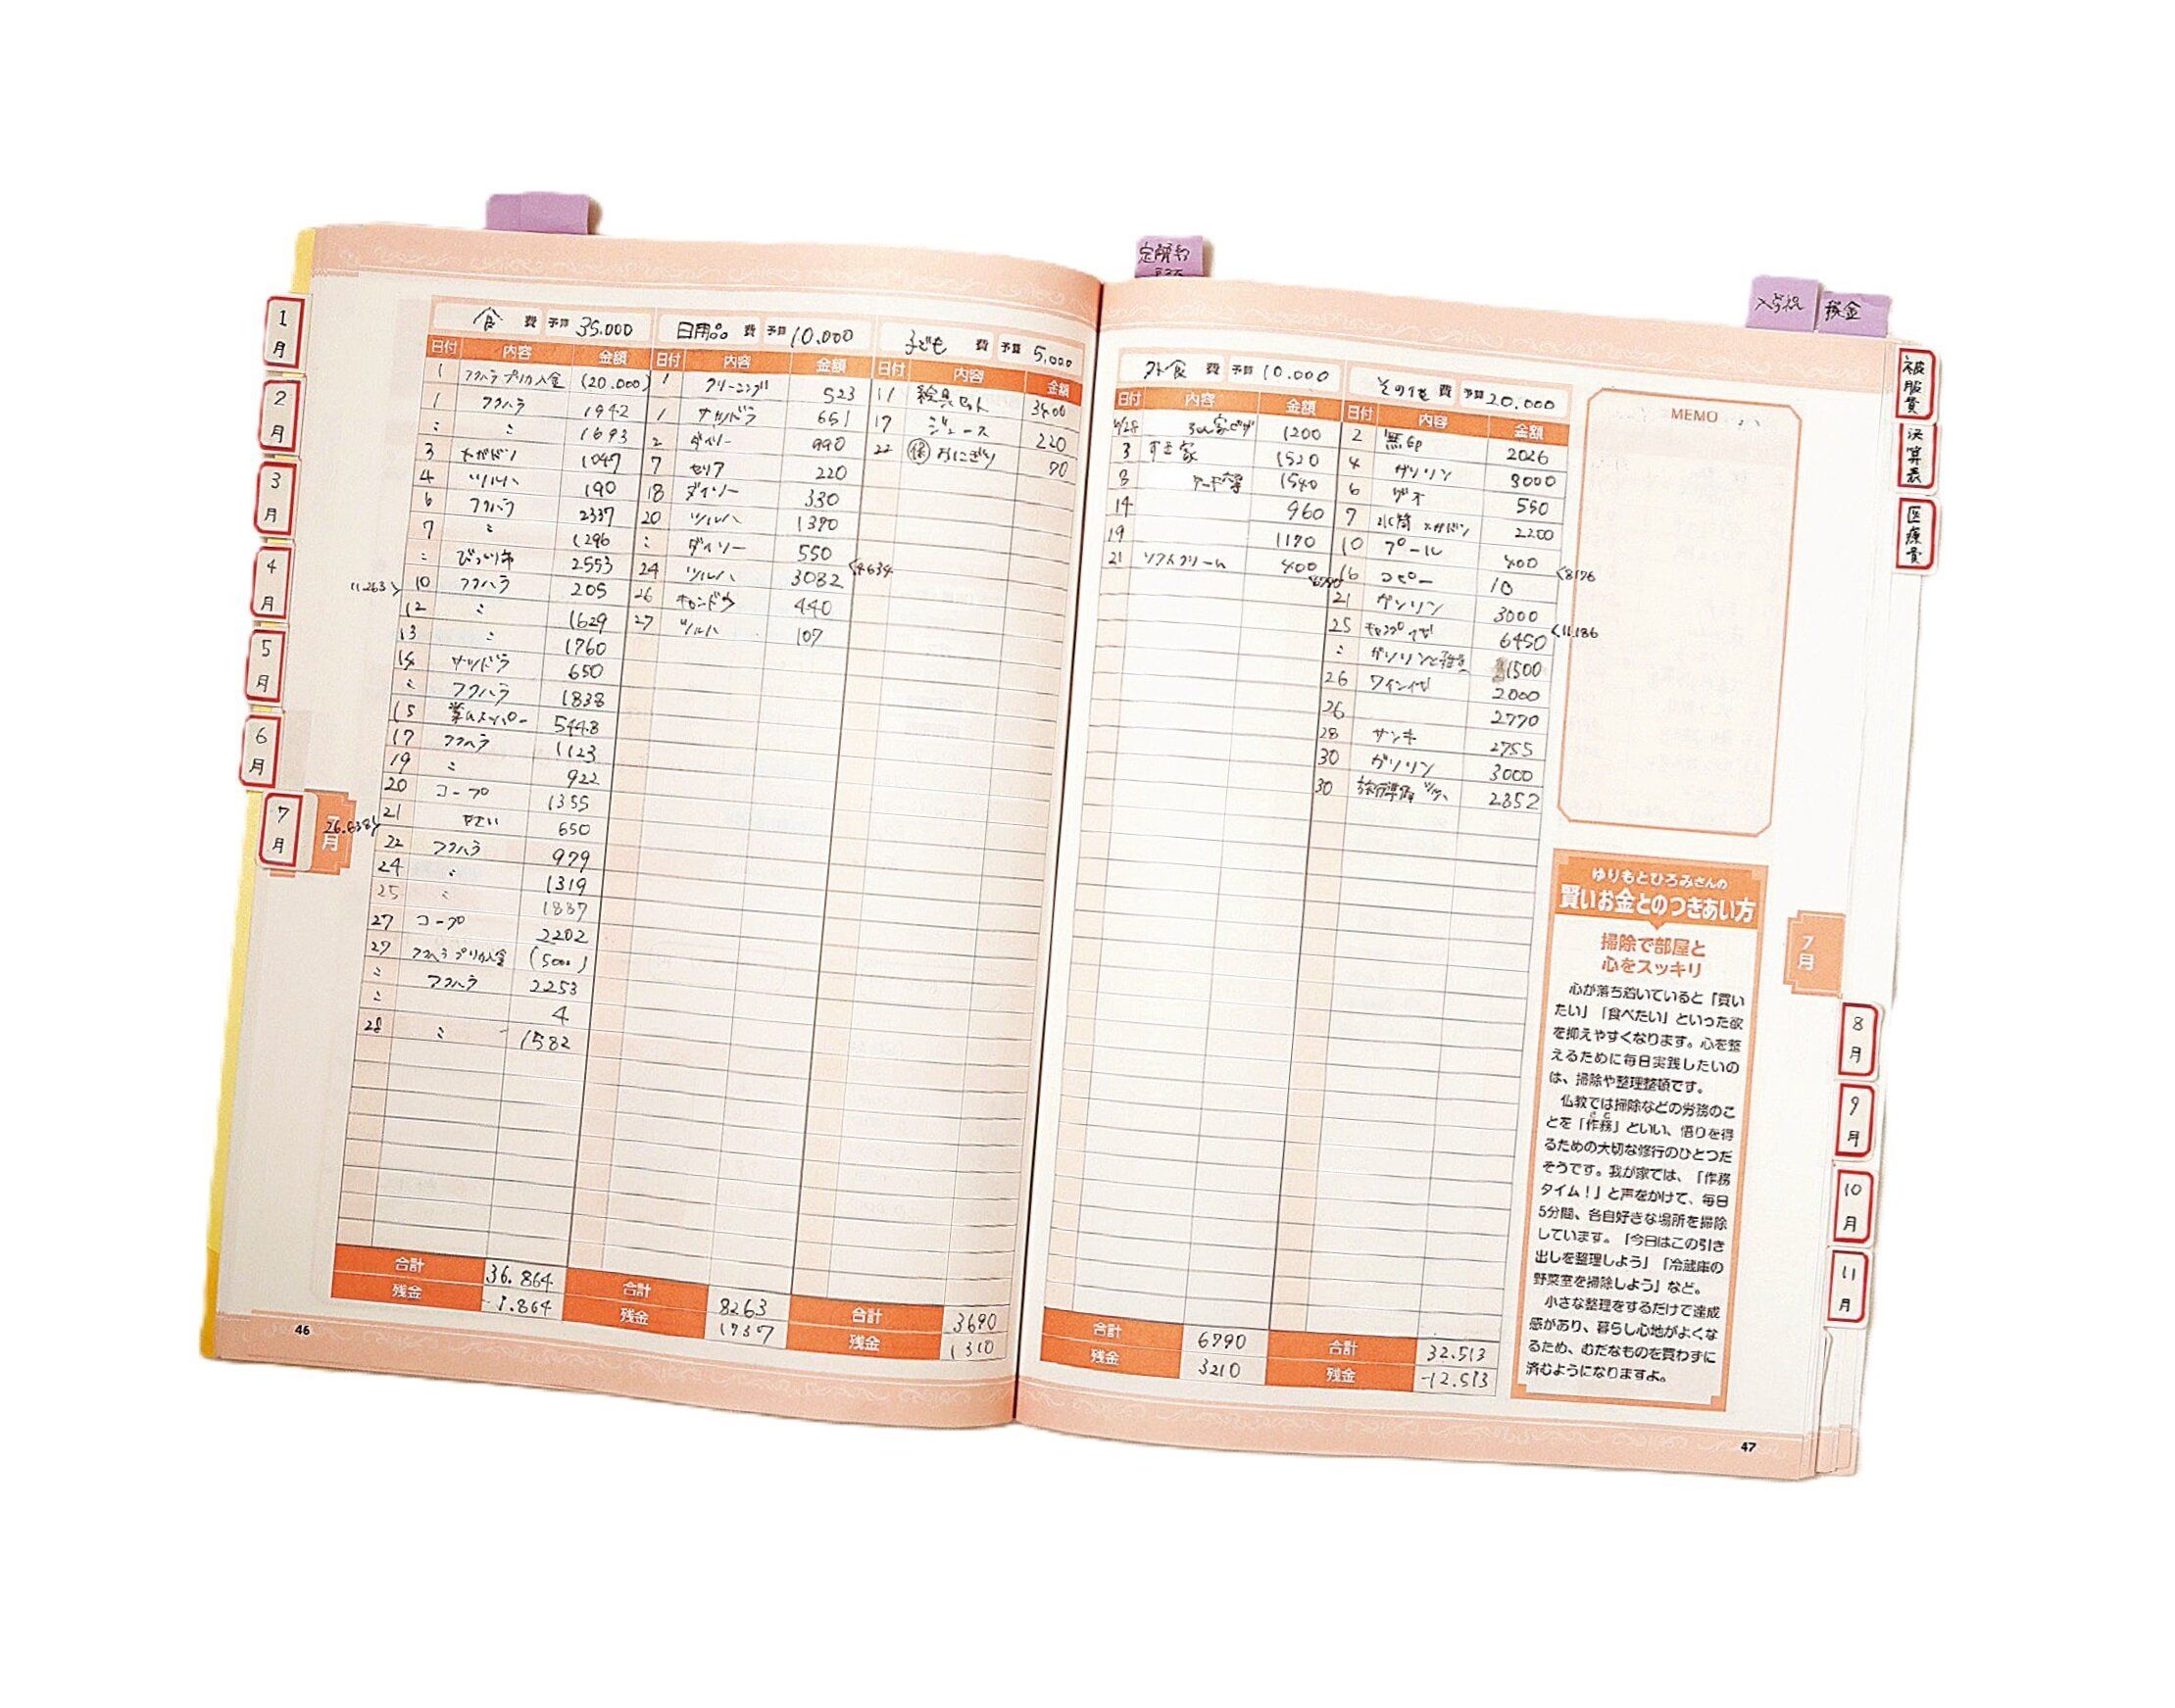 定期
入学祝
税金
1月
2月
3月
4月
5月
6月
7月
7月
食 費 予算 35.000
日付 内容 金額
1 フクハラ プリカ入金 (20.000)
1 フクハラ 1942
〃 〃 1693
3 メガドン 1047
4 ツルハ 190
6 フクハラ 2337
7 〃 1296
〃 びっくり市 2553
11.263
10 フクハラ 205
12 〃 1629
13 〃 1760
14 サツドラ 650
〃 フクハラ 1838
15 業ムスーパー 5448
17 フクハラ 1123
19 〃 922
20 コープ 1355
26.638
21 やさい 650
22 フクハラ 979
24 〃 1319
25 〃 1837
27 コープ 2202
27 フクハラ プリカ入金 (5000)
〃 フクハラ 2253
〃 4
28 〃 1582
合計 36.864
残金 -1.864
日用品 費 予算 10.000
日付 内容 金額
1 クリーニング 523
1 サツドラ 651
2 ダイソー 990
7 セリア 220
18 ダイソー 330
20 ツルハ 1390
〃 ダイソー 550
4634
24 ツルハ 3082
26 キャンドウ 440
27 ツルハ 107
合計 8263
残金 1737
子ども 費 予算 5.000
日付 内容 金額
11 絵具セット 3400
17 ジュース 220
22 おにぎり 70
合計 3690
残金 1310
46
外食 費 予算 10.000
日付 内容 金額
6/28 1200
3 すき家 1520
8 1540
14 960
19 1170
21 ソフトクリーム 400
6790
合計 6790
残金 3210
その他 費 予算 20.000
日付 内容 金額
2 無印 2026
4 ガソリン 3000
6 ゲオ 550
7 水筒 メガドン 2200
10 プール 400
8176
16 コピー 10
21 ガソリン 3000
11.186
25 キャンプ代 6450
〃 ガソリンと 1500
26 ワイン代 2000
26 2770
28 サンキ 2755
30 ガソリン 3000
30 旅行準備 ツルハ 2852
合計 32.513
残金 -12.513
MEMO
ゆりもとひろみさんの
賢いお金とのつきあい方
掃除で部屋と
心をスッキリ
心が落ち着いていると「買い
たい」「食べたい」といった欲
を抑えやすくなります。心を整
えるために毎日実践したいの
は、掃除や整理整頓です。
仏教では掃除などの労務のこ
とを「作務」といい、悟りを得
るための大切な修行のひとつだ
そうです。我が家では、「作務
タイム！」と声をかけて、毎日
5分間、各自好きな場所を掃除
しています。「今日はこの引き
出しを整理しよう」「冷蔵庫の
野菜室を掃除しよう」など。
小さな整理をするだけで達成
感があり、暮らし心地がよくな
るため、むだなものを買わずに
済むようになりますよ。
47
被服費
決算表
医療費
7月
8月
9月
10月
11月